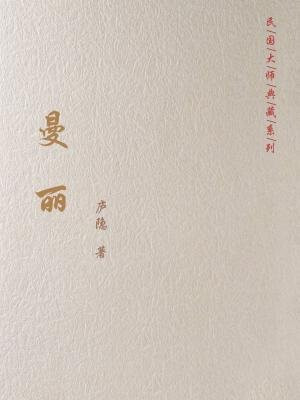 民国大师典藏系列
曼丽
庐隐 著